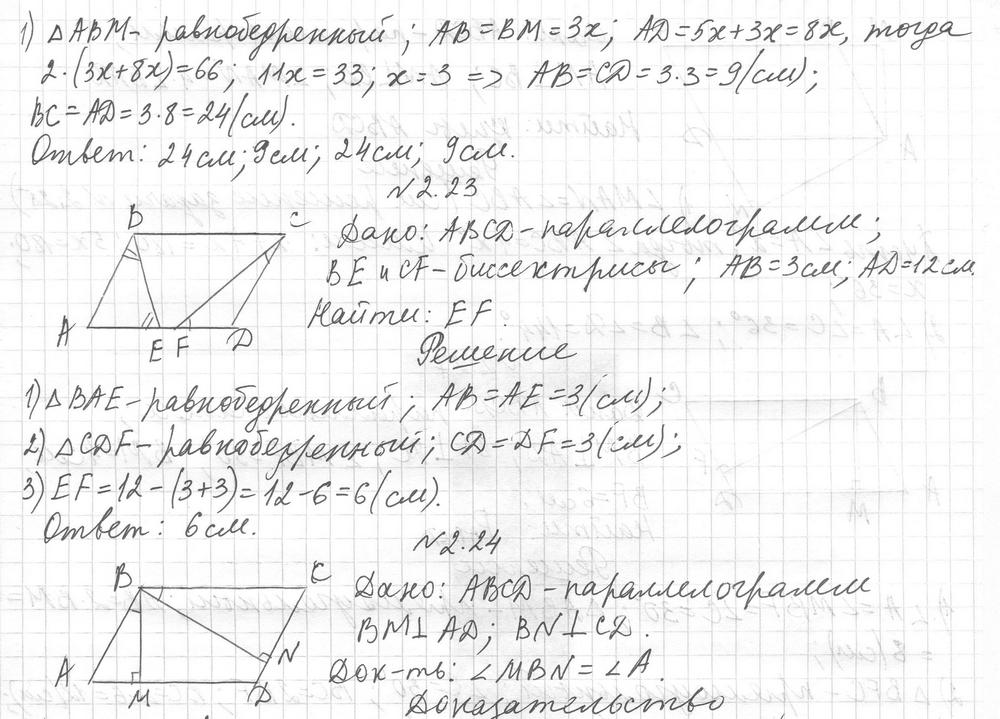 1) △ABM - равнобедренный; AB=BM=3x; AD=5x+3x=8x, тогда
2·(3x+8x)=66; 11x=33; x=3 => AB=CD=3·3=9(см);
BC=AD=3·8=24(см).
Ответ: 24см; 9см; 24см; 9см.
№2.23
B C
A E F D
Дано: ABCD - параллелограмм;
BE и CF - биссектрисы; AB=3см; AD=12см
Найти: EF.
Решение
1) △BAE - равнобедренный; AB=AE=3(см);
2) △CDF - равнобедренный; CD=DF=3(см);
3) EF=12-(3+3)=12-6=6(см).
Ответ: 6см.
№2.24
B C
A M D N
Дано: ABCD - параллелограмм
BM⊥AD; BN⊥CD.
Док-ть: ∠MBN=∠A.
Доказательство